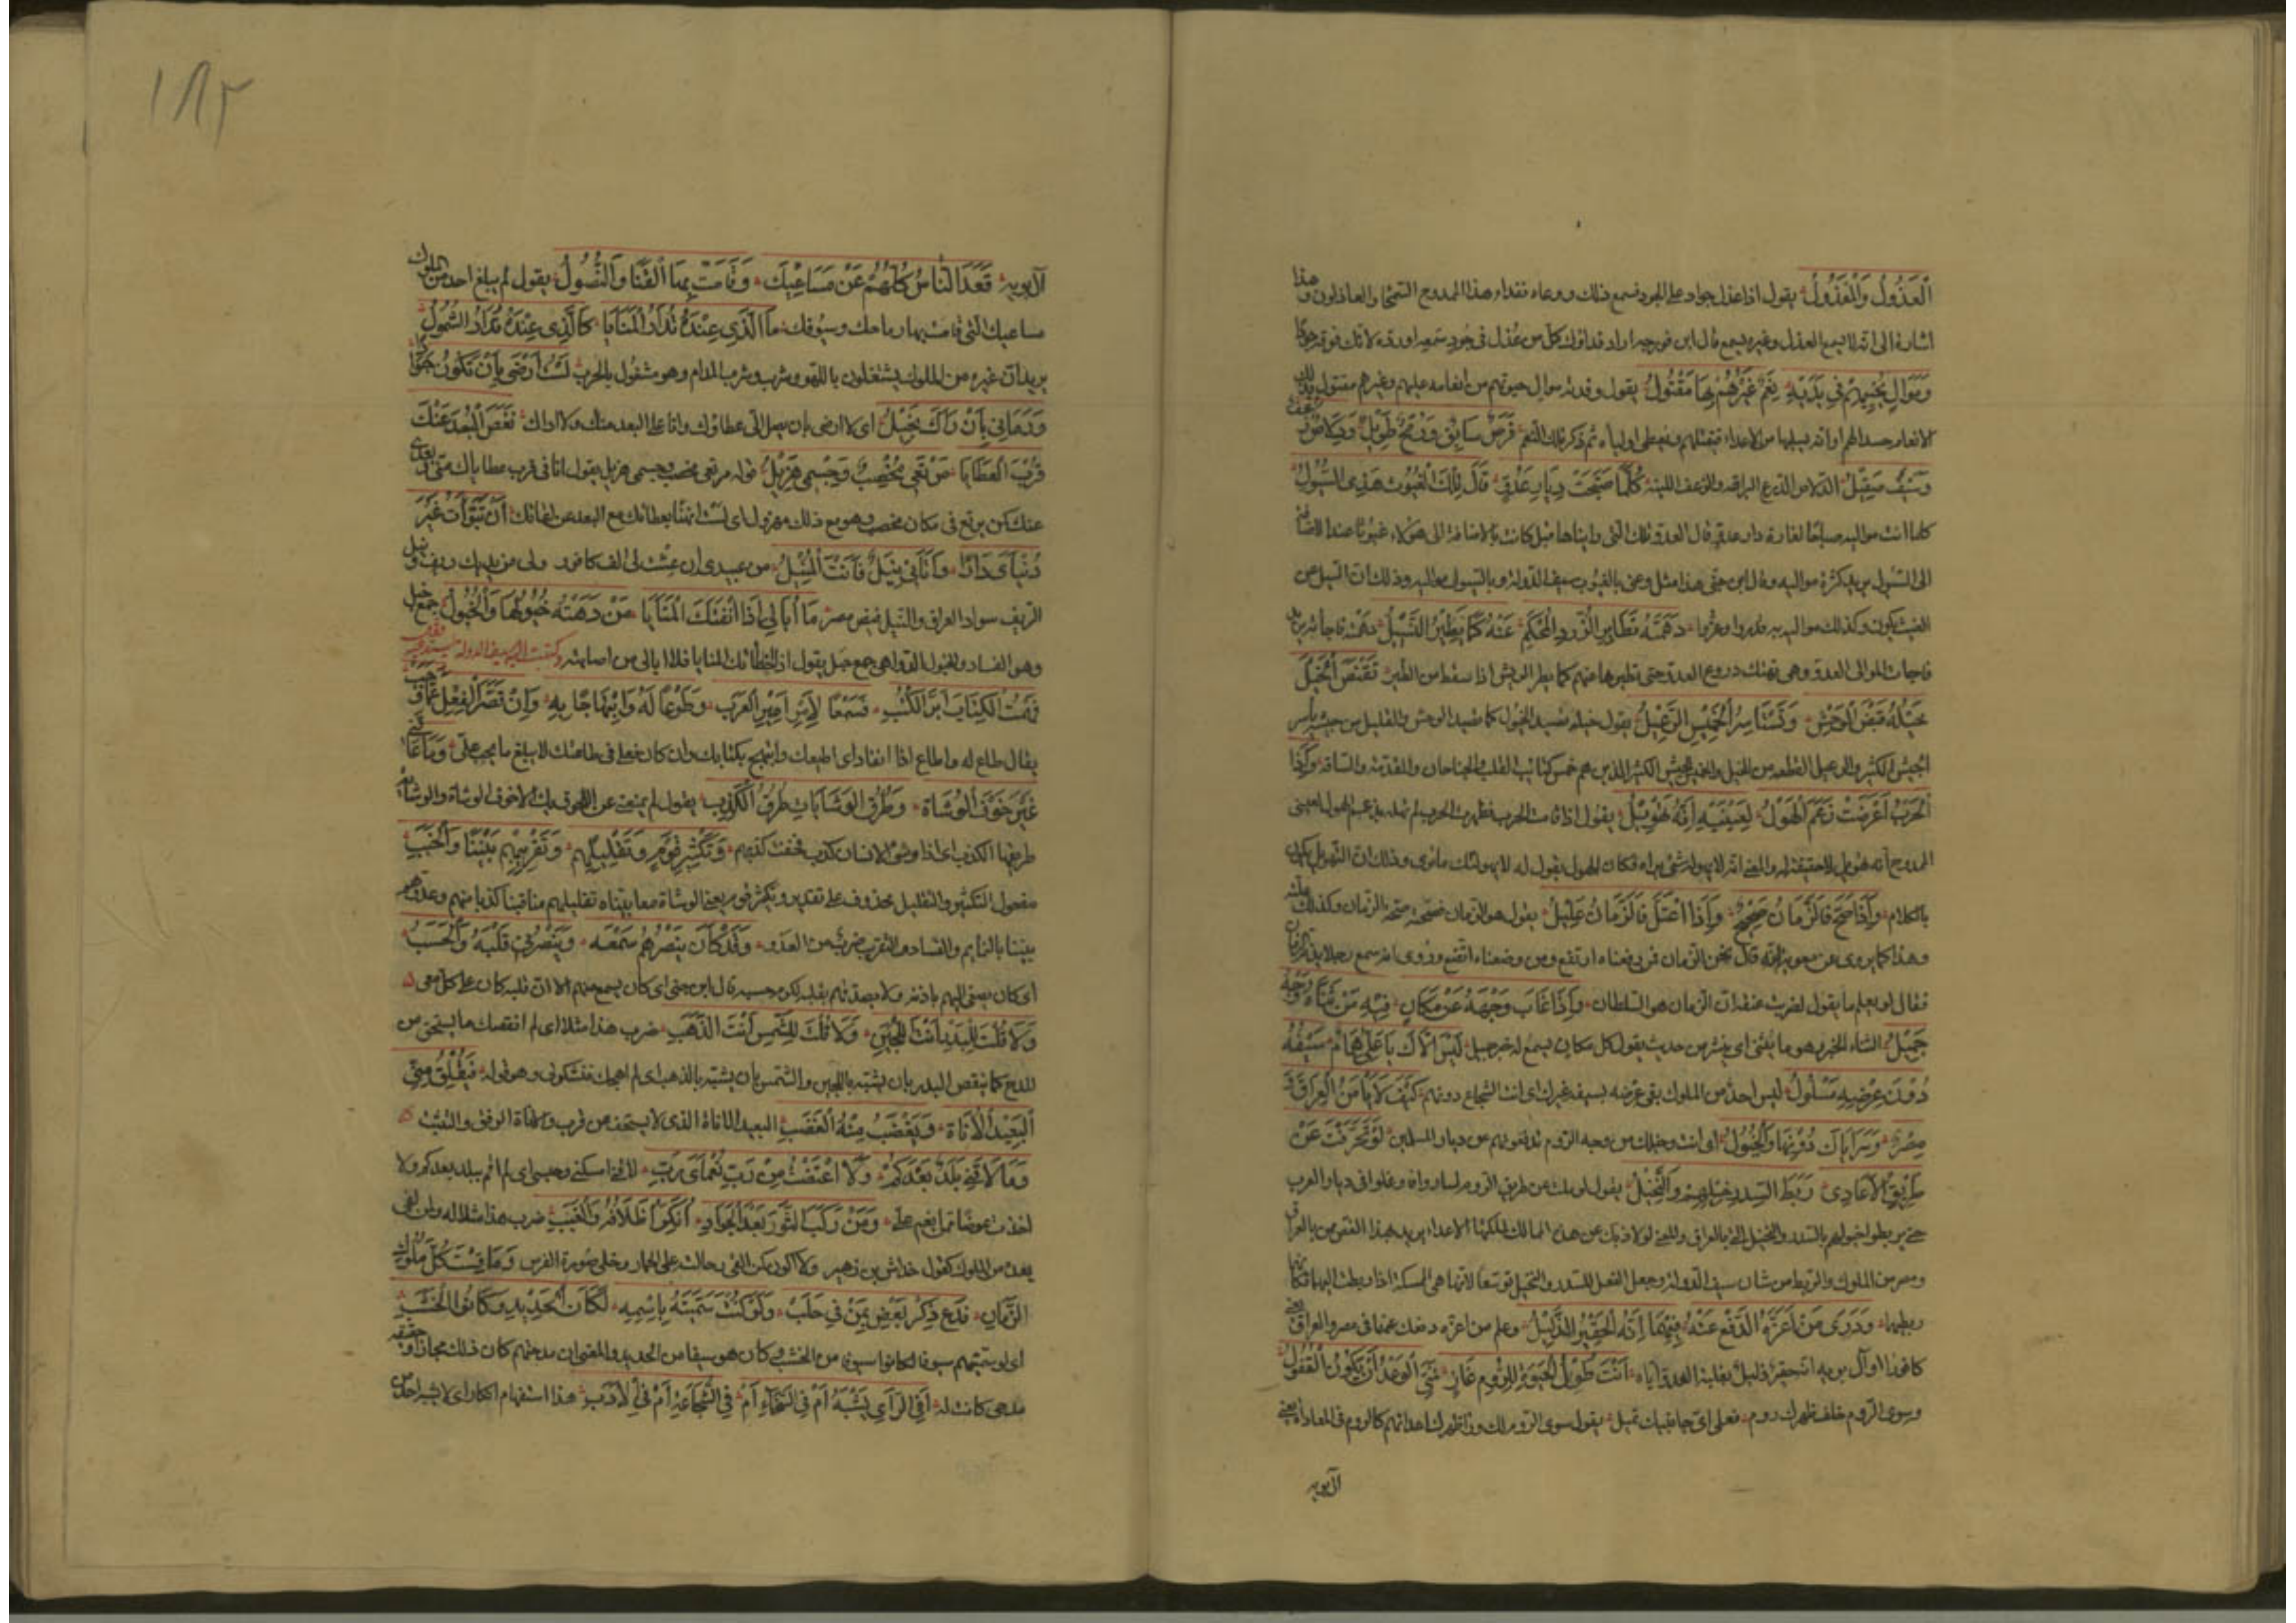 الْعَذُولُ وَالْمَعْذُولُ يقول اذا عذل جواد على الجود فسمع ذلك ووعاه ففداء هذا الممدوح السمحا والعاذلون وهذا
اشارة الى انه لا يسمع العذل وغيره يسمع قال ابن فورجه اراد فداؤك كل من عذل في جود سمعه اورده لانك فوقه جودا
وَمَوَالٍ تُحْيِيهِمْ فِي يَدَيْهِ نِعَمٌ غَيْرُهُمْ بِهَا مَقْتُولُ يقول وفدته موال حيوتهم من انعامه عليهم وغيرهم مقتول بتلك
الانعام حسدا لهم او انه يسلبها من الاعداء فيقتلهم ويعطى اولياءه ثم ذكر تلك النعم فَرَسٌ سَابِقٌ وَرُمْحٌ طَوِيلٌ وَدِلَاصٌ زَغْفٌ
وَسَيْفٌ صَقِيلُ الدلاص الدرع البراقة والزعف اللينة كُلَّمَا صَبَّحَتْ دِيَارَ عَدُوٍّ قَالَ تِلْكَ الْغُيُوثُ هَذِي السُّيُولُ
كلما اتت مواليه صباحا لغارة دار عدو قال العدو تلك التى رايناها قبل كانت بالاضافة الى هؤلاء غيوثا عند الاضافة
الى السيول من كثرة مواليه وقال ابن جنى هذا مثل وعنى بالغيوث سيف الدولة وبالسيول مواليه وذلك ان السيل من
الغيث يكون وكذلك مواليه به قدروا وعزوا دَهِمَتْهُ تُطَايِرُ الزَّرَدَ الْمُحْكَمَ عَنْهُ كَمَا يَطِيرُ النَّسِيلُ دهمته فاجأته يريد
فاجات الموالى العدو وهى تهتك دروع العدو حتى تطيرها عنهم كما يطير الريش اذا سقط من الطير تَقْنِصُ الْخَيْلَ
خَيْلُهُ قَنَصَ الْوَحْشِ وَيَسْتَأْسِرُ الْخَمِيسَ الرَّعِيلُ يقول خيله تصيد الخيول كما تصيد الوحش والقليل من جيشه يأسر
الجيش الكثير والرعيل القطعة من الخيل والخميس الجيش الكثير الذين هم خمس كتائب القلب والجناحان والمقدمة والساقة وَإِذَا
الْحَرْبُ أَعْرَضَتْ زَعَمَ الْهَوْلُ لِعَيْنَيْهِ أَنَّهُ تَهْوِيلُ يقول اذا قامت الحرب فظهرت الحرب لم تهله بل زعم الهول لعينى
الممدوح انه تهويل لا حقيقة له والمعنى انه لا يهوله شئ يراه فكان الهول يقول له لا يهولنك ما ترى وذلك ان التهويل يكون
بالكلام وَإِذَا صَحَّ فَالزَّمَانُ صَحِيحٌ وَإِذَا اعْتَلَّ فَالزَّمَانُ عَلِيلُ يقول هو الزمان فصحته صحة الزمان وكذلك علته
وهذا كما يروى عن معوية انه قال نحن الزمان فمن رفعناه ارتفع ومن وضعناه اتضع وروى انه سمع رجلا يذم الزمان
فقال لو يعلم ما يقول لضربت عنقه ان الزمان هو السلطان وَإِذَا غَابَ وَجْهُهُ عَنْ مَكَانٍ فَبِهِ مِنْ ثَنَاهُ وَجْهٌ
جَمِيلُ الثناء الخبر وهو ما يثنى اى ينشر من حديث يقول كل مكان يسمع له خبر جميل لَيْسَ إِلَّاكَ يَا عَلِيُّ هُمَامٌ سَيْفُهُ
دُونَ عِرْضِهِ مَسْلُولُ ليس احد من الملوك يقى عرضه بسيفه غيرك اى انت الشجاع دونهم كَيْفَ لَا يَأْمَنُ الْعِرَاقُ وَ
مِصْرٌ وَسَرَايَاكَ دُونَهَا وَالْخُيُولُ اى انت وخيلك من وجه الروم تدفعونهم عن ديار المسلمين لَوْ تَحَرَّفْتَ عَنْ
طَرِيقِ الْأَعَادِي رَبَطَ السِّدْرُ خَيْلَهُمْ وَالنَّخِيلُ يقول لو ملت عن طريق الروم لساروا وغلوا فى ديار العرب
حتى يربطوا خيولهم بالسدر والنخيل التى بالعراق والمعنى لولا ذبك عن هذه الممالك لملكها الاعداء يريد بهذا الغض ممن بالعراق
ومصر من الملوك والرفع من شان سيف الدولة وجعل الفعل للسدر والنخيل توسعا لانها هى الممسكة اذا ربطت اليها فكانها
ربطتها وَدَرَى مَنْ أَعَزَّهُ الدَّفْعُ عَنْهُ فِيهِمَا أَنَّهُ الْحَقِيرُ الذَّلِيلُ وعلم من اعزه دفعك عنه فى مصر والعراق يعنى
كافورا وآل بويه انه حقير ذليل بغلبة العدو اياه أَنْتَ طُولَ الْحَيَوةِ لِلرُّومِ غَازٍ فَمَتَى الْوَعْدُ أَنْ يَكُونَ الْقُفُولُ
وسوى الروم خلف ظهرك روم فعلى اى جانبيك تميل يقول سوى الروم لك وراء ظهرك اعداء هم كالروم فى المعاداة يعنى
آل بويه
١٨٣
آل بويه قَعَدَ النَّاسُ كُلُّهُمْ عَنْ مَسَاعِيكَ وَقَامَتْ بِهَا الْقَنَا وَالنُّصُولُ يقول لم يبلغ احد من الملوك
مساعيك التى قامت بها رماحك وسيوفك مَا الَّذِي عِنْدَهُ تُدَارُ الْمَنَايَا كَالَّذِي عِنْدَهُ تُدَارُ الشَّمُولُ
يريد ان غيره من الملوك يشتغلون باللهو وبشرب المدام وهو مشغول بالحرب لَسْتُ أَرْضَى بِأَنْ تَكُونَ جَوَادًا
وَزَمَانِي بِأَنْ أَرَاكَ بَخِيلُ اى لا ارضى بان يصل الى عطاؤك وانا على البعد منك ولا اراك نَغَّصَ الْبُعْدُ عَنْكَ
قُرْبَ الْعَطَايَا مَرْتَعِي مُخْصِبٌ وَجِسْمِي هَزِيلُ قوله مرتعى مخصب وجسمى هزيل يقول انا فى قرب عطاياك منى وبعدى
عنك كمن يرتع فى مكان مخصب وهو مع ذلك مهزول اى لست اتهنأ بعطائك مع البعد عن لقائك إِنْ تَبَوَّأْتُ غَيْرَ
دُنْيَايَ دَارًا وَأَتَانِي نَيْلٌ فَأَنْتَ الْمُنِيلُ من عبيدى ان عشت لى الف كافور ولى من نداك ريف ونيل
الريف سواد العراق والنيل فيض مصر مَا أُبَالِي إِذَا اتَّقَتْكَ الْمَنَايَا مَنْ دَهَتْهُ خُبُولُهَا وَالْخُبُولُ جمع خبل
وهو الفساد والحبول الدواهى جمع حبل يقول اذا اخطأتك المنايا فلا ابالى من اصابته وكتب اليه سيف الدولة
فَهِمْتُ الْكِتَابَ أَبَرَّ الْكُتُبِ فَسَمْعًا لِأَمْرِ أَمِيرِ الْعَرَبِ وَطَوْعًا لَهُ وَابْتِهَاجًا بِهِ وَإِنْ قَصَّرَ الْفِعْلُ عَمَّا وَجَبَ
يقال طاع له واطاع اذا انقاد اى اطيعك وابتهج بكتابك وان كان فعلى فى طاعتك لا يبلغ ما يجب على وَمَا عَاقَنِي
غَيْرُ خَوْفِ الْوُشَاةِ وَطُرْقِ الْوِشَايَاتِ طُرْقُ الْكَذِبِ يقول لم يمنعنى عن اللحوق بك الا خوف الوشاة والوشاية
طريقها الكذب اى اذا وشى الانسان كذب فخفت كذبهم وَتَكْثِيرِ قَوْمٍ وَتَقْلِيلِهِمْ وَتَقْرِيبِهِمْ بَيْنَنَا وَالْخَبَبِ
مفعول التكثير والتقليل محذوف على تقدير وتكثير قوم يعنى الوشاة معايبنا وتقليلهم مناقبنا كذبا منهم وعدوهم
بيننا بالنمائم والفساد والتقريب ضرب من العدو وَقَدْ كَانَ يَنْصُرُهُمْ سَمْعُهُ وَيَنْصُرُنِي قَلْبُهُ وَالْحَسَبُ
اى كان يصغى اليهم باذنه ولا يصدقهم بقلبه لكرم حسبه قال ابن جنى اى كان يسمع منهم الا ان قلبه كان على كل معى
وَلَا قُلْتُ لِلْبَدْرِ أَنْتَ اللُّجَيْنُ وَلَا قُلْتُ لِلشَّمْسِ أَنْتِ الذَّهَبُ ضرب هذا مثلا اى لم انقصك ما يستحق من
المدح كما ينقص البدر بان يشبه باللجين والشمس بان يشبه بالذهب اى لم اهجك فتشكونى وهو قوله فَيَقْلَقَ مِنْهُ
الْبَعِيدُ الْأَنَاةِ وَيَغْضَبُ مِنْهُ الْغَضَبُ البعيد الاناة الذى لا يستخف من قرب والاناة الرفق والتثبت
وَمَا لَاقَنِي بَلَدٌ بَعْدَكُمْ وَلَا اعْتَضْتُ مِنْ رَبِّ نُعْمَايَ رَبْ لاقنى امسكنى وحبسنى اى لم اقم ببلد بعدكم ولا
اخذت عوضا ممن انعم على وَمَنْ رَكِبَ الثَّوْرَ بَعْدَ الْجَوَادِ أَنْكَرَ أَظْلَافَهُ وَالْغَبَبْ ضرب هذا مثلا له ولمن لقى
بعده من الملوك كقول خداش بن زهير ولا اكون كمن القى رحالته على الحمار وخلى صهوة الفرس وَمَا قِسْتُ كُلَّ مُلُوكِ
الزَّمَانِ فَدَعْ ذِكْرَ بَعْضٍ بِمَنْ فِي حَلَبْ وَلَوْ كُنْتُ سَمَّيْتُهُ بِاسْمِهِ لَكَانَ الْحَدِيدَ وَكَانُوا الْخَشَبْ
اى لو سميتهم سيوفا لكانوا سيوفا من الخشب وكان هو سيفا من الحديد والمعنى ان مدحتهم كان ذلك مجازا وحقيقة
مدحى كانت له أَفِي الرَّأْيِ يُشْبَهُ أَمْ فِي السَّخَاءِ أَمْ فِي الشَّجَاعَةِ أَمْ فِي الْأَدَبْ هذا استفهام انكار اى لا يشبه احد من